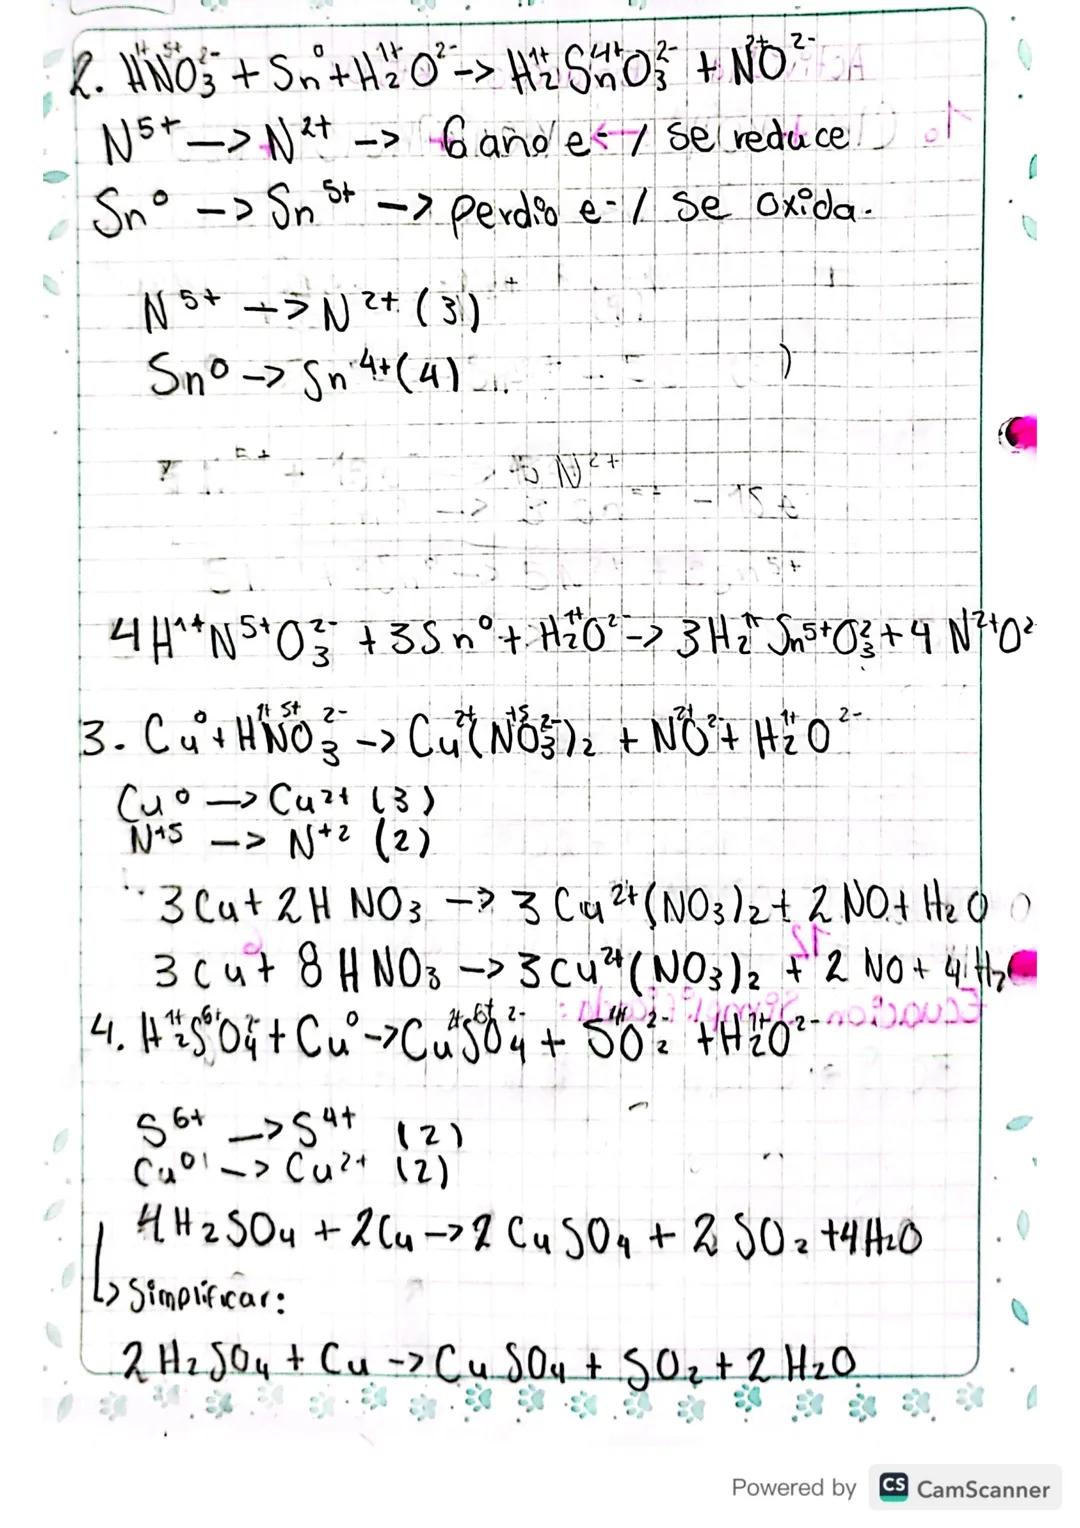 2. H¹⁺N⁵⁺O₃²⁻ + Sn⁰ + H₂¹⁺O²⁻ -> H₂¹⁺Sn⁴⁺O₃²⁻ + N²⁺O²⁻
N⁵⁺ -> N²⁺ -> Ganó e- / se reduce
Sn⁰ -> Sn⁵⁺ -> perdió e- / se oxida.
N⁵⁺ -> N²⁺ (3)
Sn⁰ -> Sn⁴⁺ (4)
4H¹⁺N⁵⁺O₃²⁻ + 3Sn⁰ + H₂¹⁺O²⁻ -> 3H₂¹⁺Sn⁵⁺O₃²⁻ + 4N²⁺O²
3. Cu⁰ + H¹⁺N⁵⁺O₃²⁻ -> Cu²⁺(N⁺⁵O₃²⁻)₂ + N²⁺O²⁻ + H₂¹⁺O²⁻
Cu⁰ -> Cu²⁺ (3)
N⁺⁵ -> N⁺² (2)
3Cu + 2HNO₃ -> 3Cu²⁺(NO₃)₂ + 2NO + H₂O
3Cu + 8HNO₃ -> 3Cu²⁺(NO₃)₂ + 2NO + 4H₂
4. H₂¹⁺S⁶⁺O₄²⁻ + Cu⁰ -> Cu²⁺S⁶⁺O₄²⁻ + S⁴⁺O₂²⁻ + H₂¹⁺O²⁻
S⁶⁺ -> S⁴⁺ (2)
Cu⁰ -> Cu²⁺ (2)
4H₂SO₄ + 2Cu -> 2CuSO₄ + 2SO₂ + 4H₂O
↳ Simplificar:
2H₂SO₄ + Cu -> CuSO₄ + SO₂ + 2H₂O
Powered by CS CamScanner